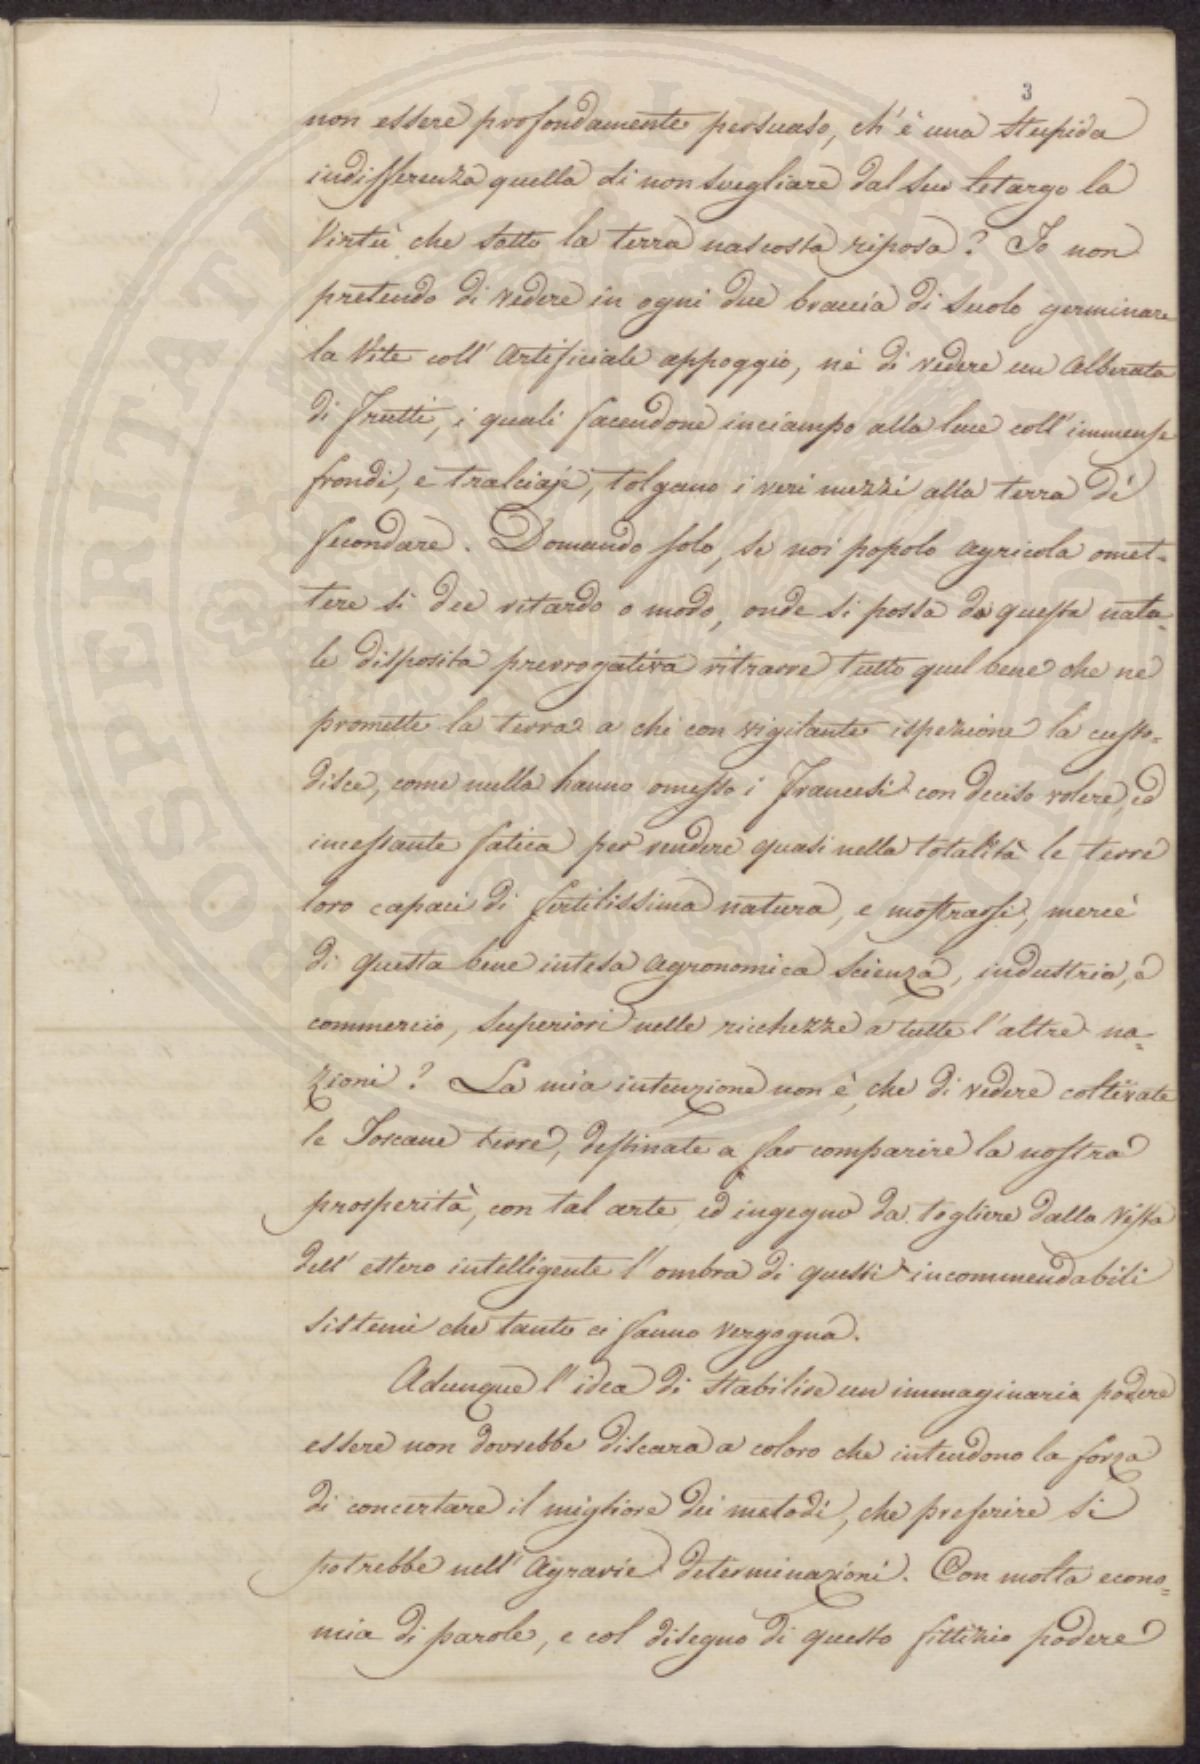 3
non essere profondamente persuaso, ch'è una stupida
indifferenza quella di non svegliare dal suo letargo la
virtù che sotto la terra nascosta riposa? Io non
pretendo di vedere in ogni due braccia di suolo germinare
la Vite coll'artificiale appoggio, nè di vedere un Alberata
di frutti, i quali facendone inciampo alla luce coll'immense
frondi, e tralciaje, tolgano i veri mezzi alla terra di
fecondare. Domando solo, se noi popolo agricola omet-
tere si dee ritardo o modo, onde si possa da questa nata-
le disposita prerrogativa ritrarre tutto quel bene che ne
promette la terra a chi con vigilante ispezione la custo-
disce, come nulla hanno omesso i Francesi con deciso volere, ed
incessante fatica per rendere quasi nella totalità le terre
loro capaci di fertilissima natura, e mostrarsi, mercè
di questa bene intesa agronomica scienza, industria, e
commercio, superiori nelle ricchezze a tutte l'altre na-
zioni? La mia intenzione non è, che di vedere coltivate
le Toscane terre, destinate a far comparire la nostra
prosperità, con tal arte, ed ingegno da togliere dalla vista
dell'estero intelligente l'ombra di questi incommendabili
sistemi che tanto ci fanno vergogna.
Adunque l'idea di stabilire un immaginario podere
essere non dovrebbe discara a coloro che intendono la forza
di concertare il migliore dei metodi, che preferire si
potrebbe nell'Agrarie determinazioni. Con molta econo-
mia di parole, e col disegno di questo fittizio podere
PROSPERITATI PUBLICAE AUGENDAE